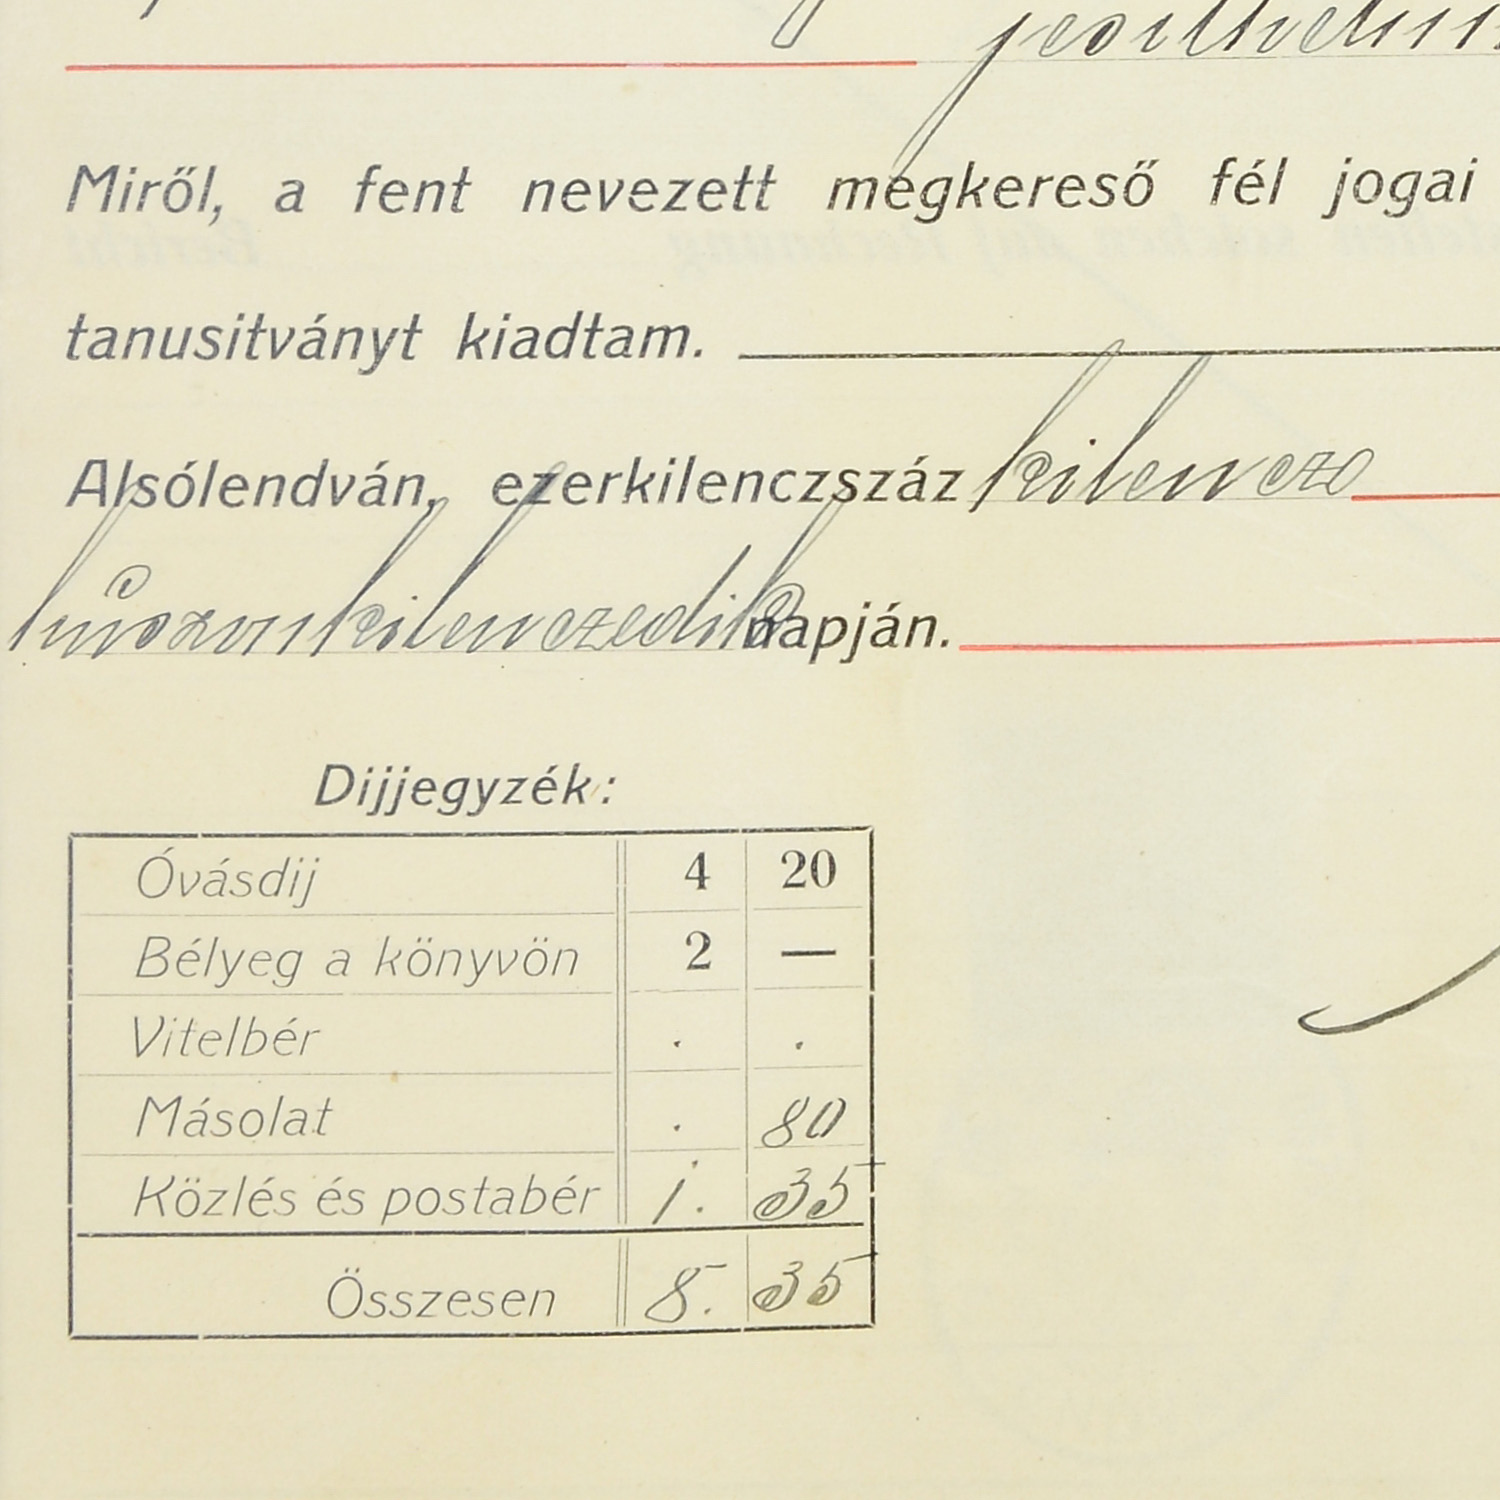 Miről, a fent nevezett megkereső fél jogai
tanusitványt kiadtam.
Alsólendván, ezerkilenczszáz kilencz
huszonkilenczedik napján.
Dijjegyzék:
Óvásdij 4 20
Bélyeg a könyvön 2 —
Vitelbér . .
Másolat . 80
Közlés és postabér 1. 35
Összesen 8. 35